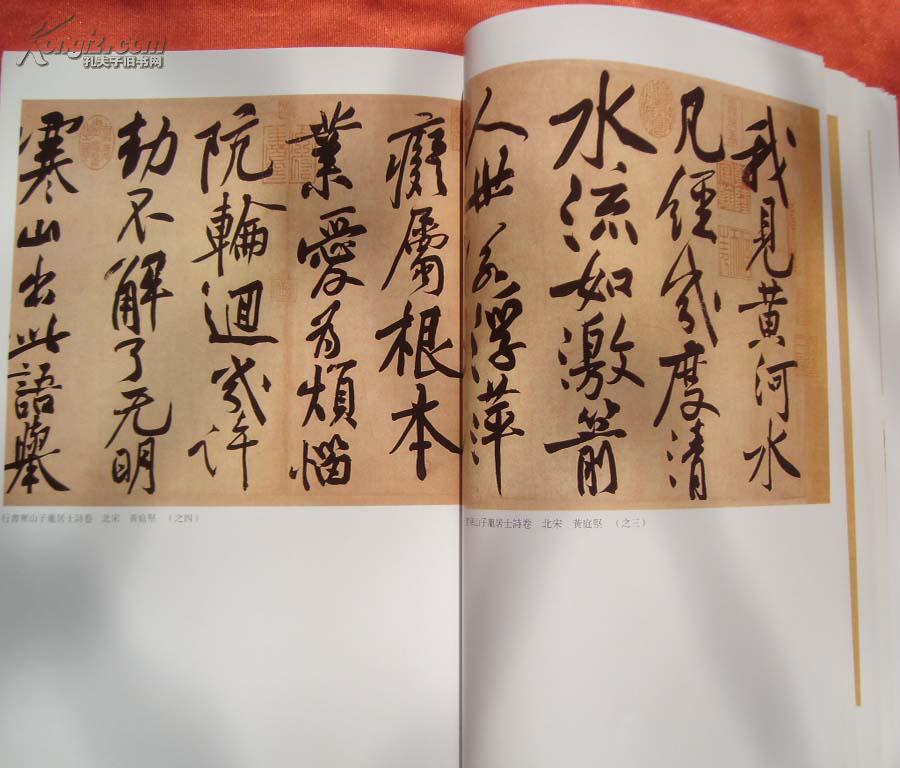 Kongfz.com
孔夫子旧书网
我見黃河水
凡經幾度清
水流如激箭
人世若浮萍
癡屬根本
業愛為煩惱
阬輪迴幾許
劫不解了无明
寒山出此語舉
寒山子龐居士詩卷 北宋 黃庭堅 （之三）
行書寒山子龐居士詩卷 北宋 黃庭堅 （之四）